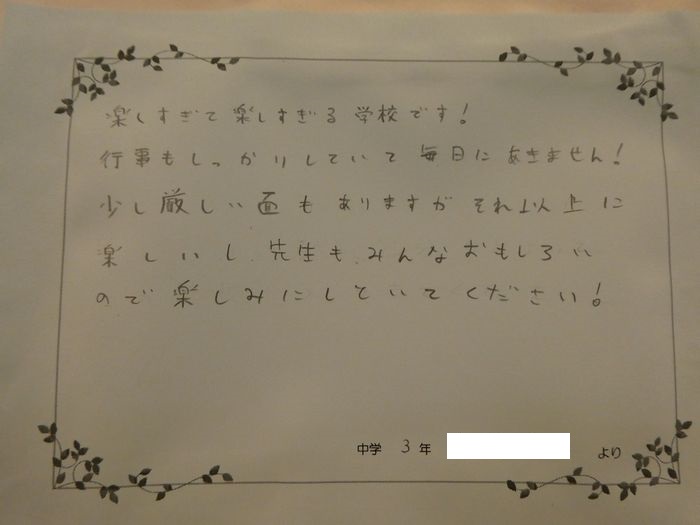 楽しすぎて楽しすぎる学校です!
行事もしっかりしていて毎日にあきません!
少し厳しい面もありますがそれ以上に
楽しいし、先生も、みんなおもしろい
ので楽しみにしていてください!
中学 3 年 より